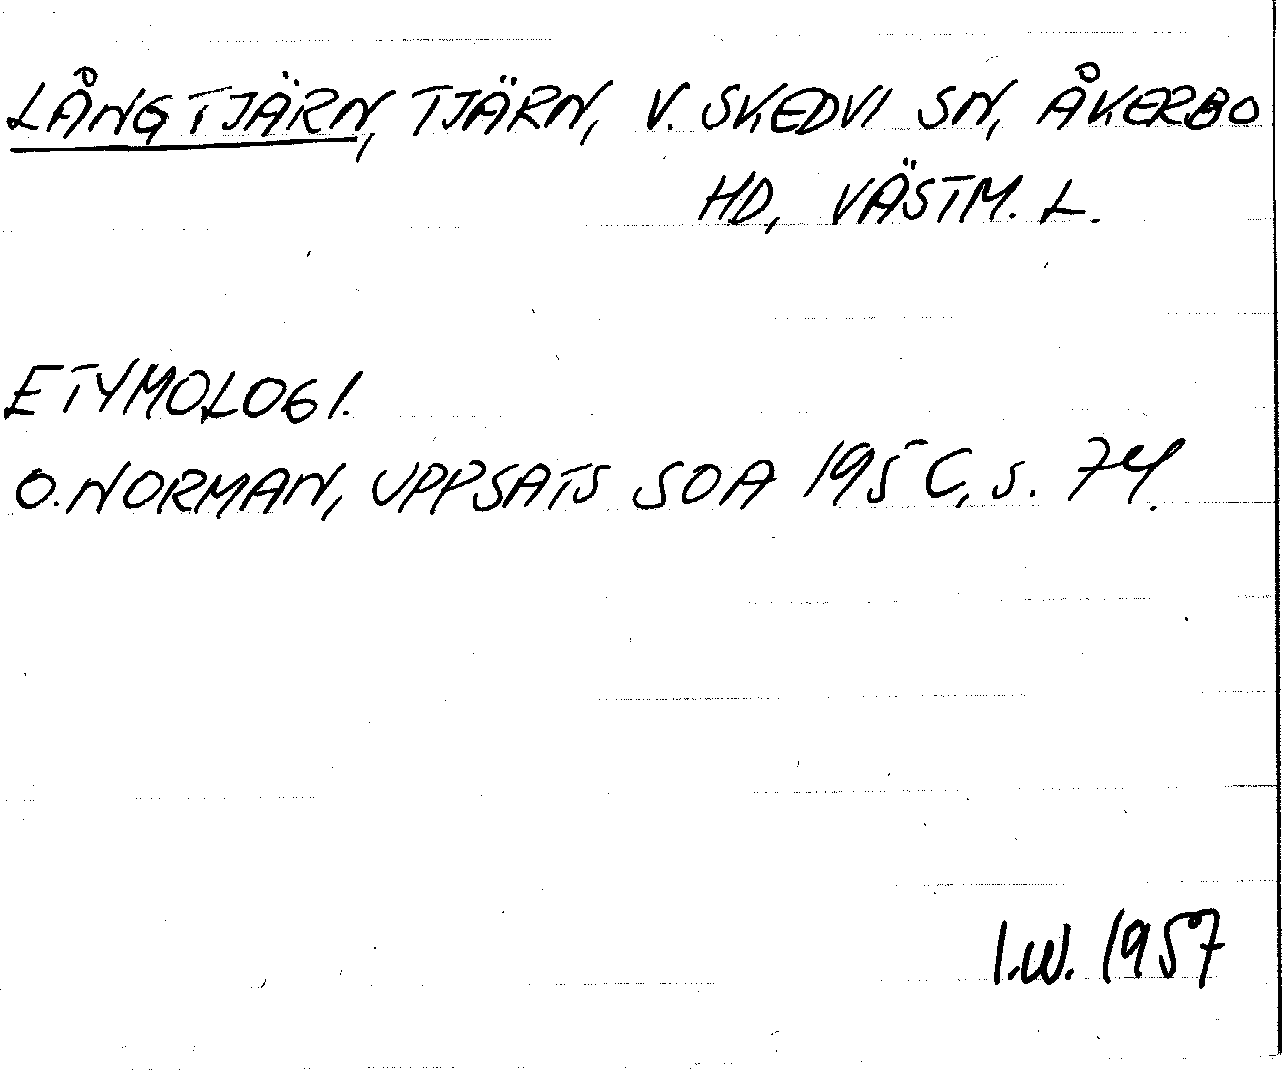 LÅNGTJÄRN, TJÄRN, V. SKEDVI SN, ÅKERBO
HD, VÄSTM. L.
ETYMOLOGI.
O. NORMAN, UPPSATS SOA 195 C, s. 74.
I.W. 1957